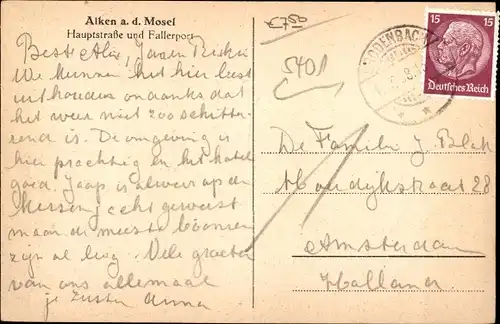 Aiken a. d. Mosel
Hauptstraße und Fallerport
Beste Alie, Jaap en
We kunnen het hier best
uithouden ondanks dat
het weer niet zoo schitte-
rend is. De omgeving is
hier prachtig en het hotel
goed. Jaap is alweer op de
echt geweest
maar de meeste boomen
zijn al leeg. Vele groeten
van ons allemaal
je zuster Anna
€ 7,50
5401
15 15
Deutsches Reich
De Familie J. Blok
28
Amsterdam
Holland